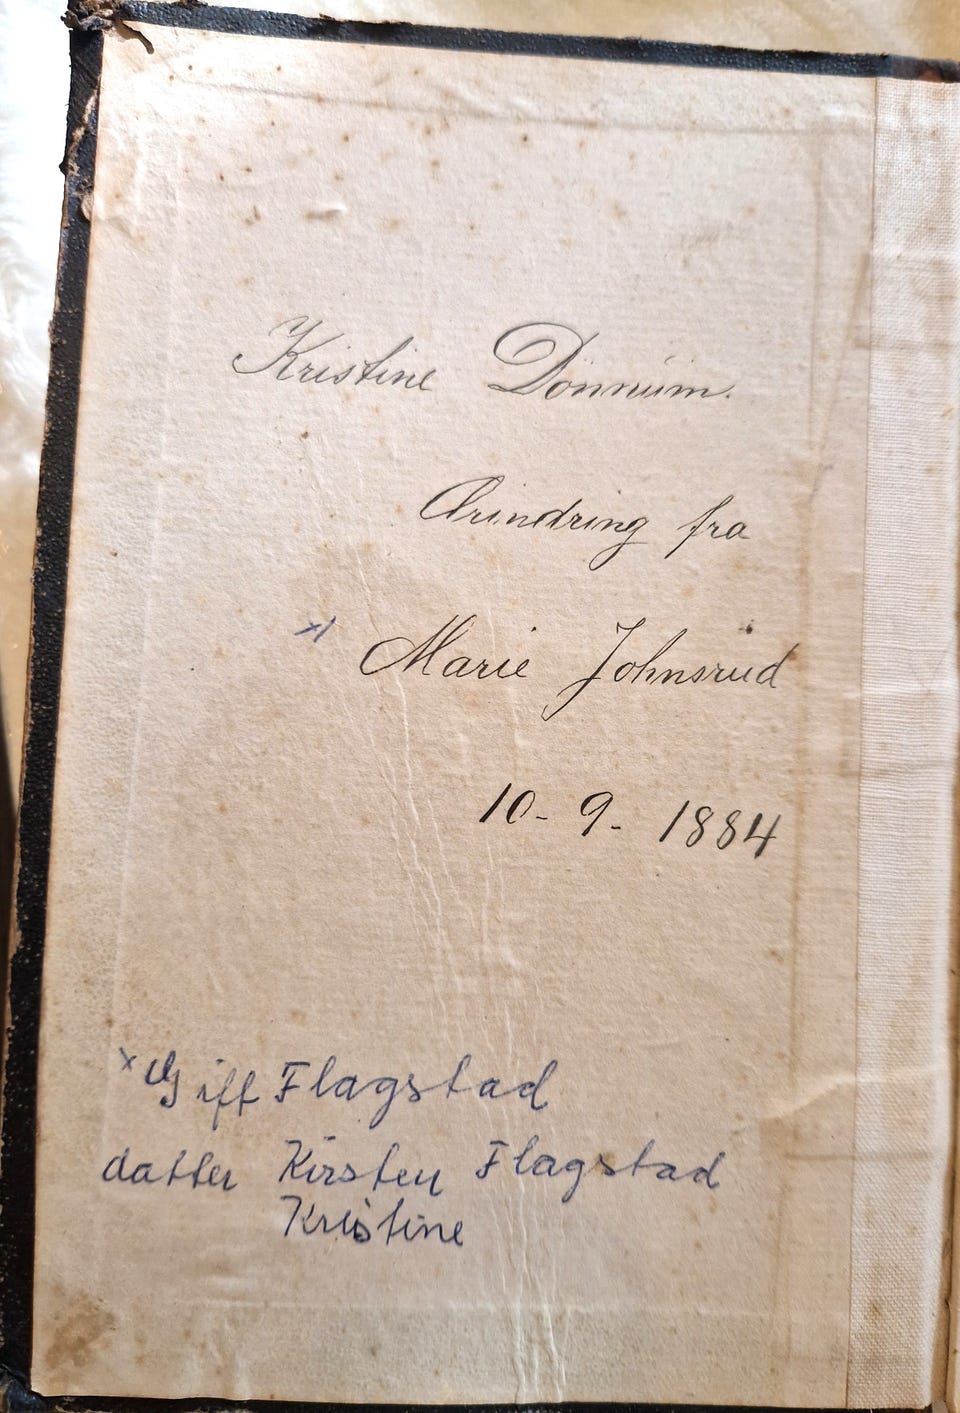 Kristine Dönnúm.
Erindring fra
x/ Marie Johnsrud
10- 9- 1884
x Gift Flagstad
datter Kirsten Flagstad
Kristine